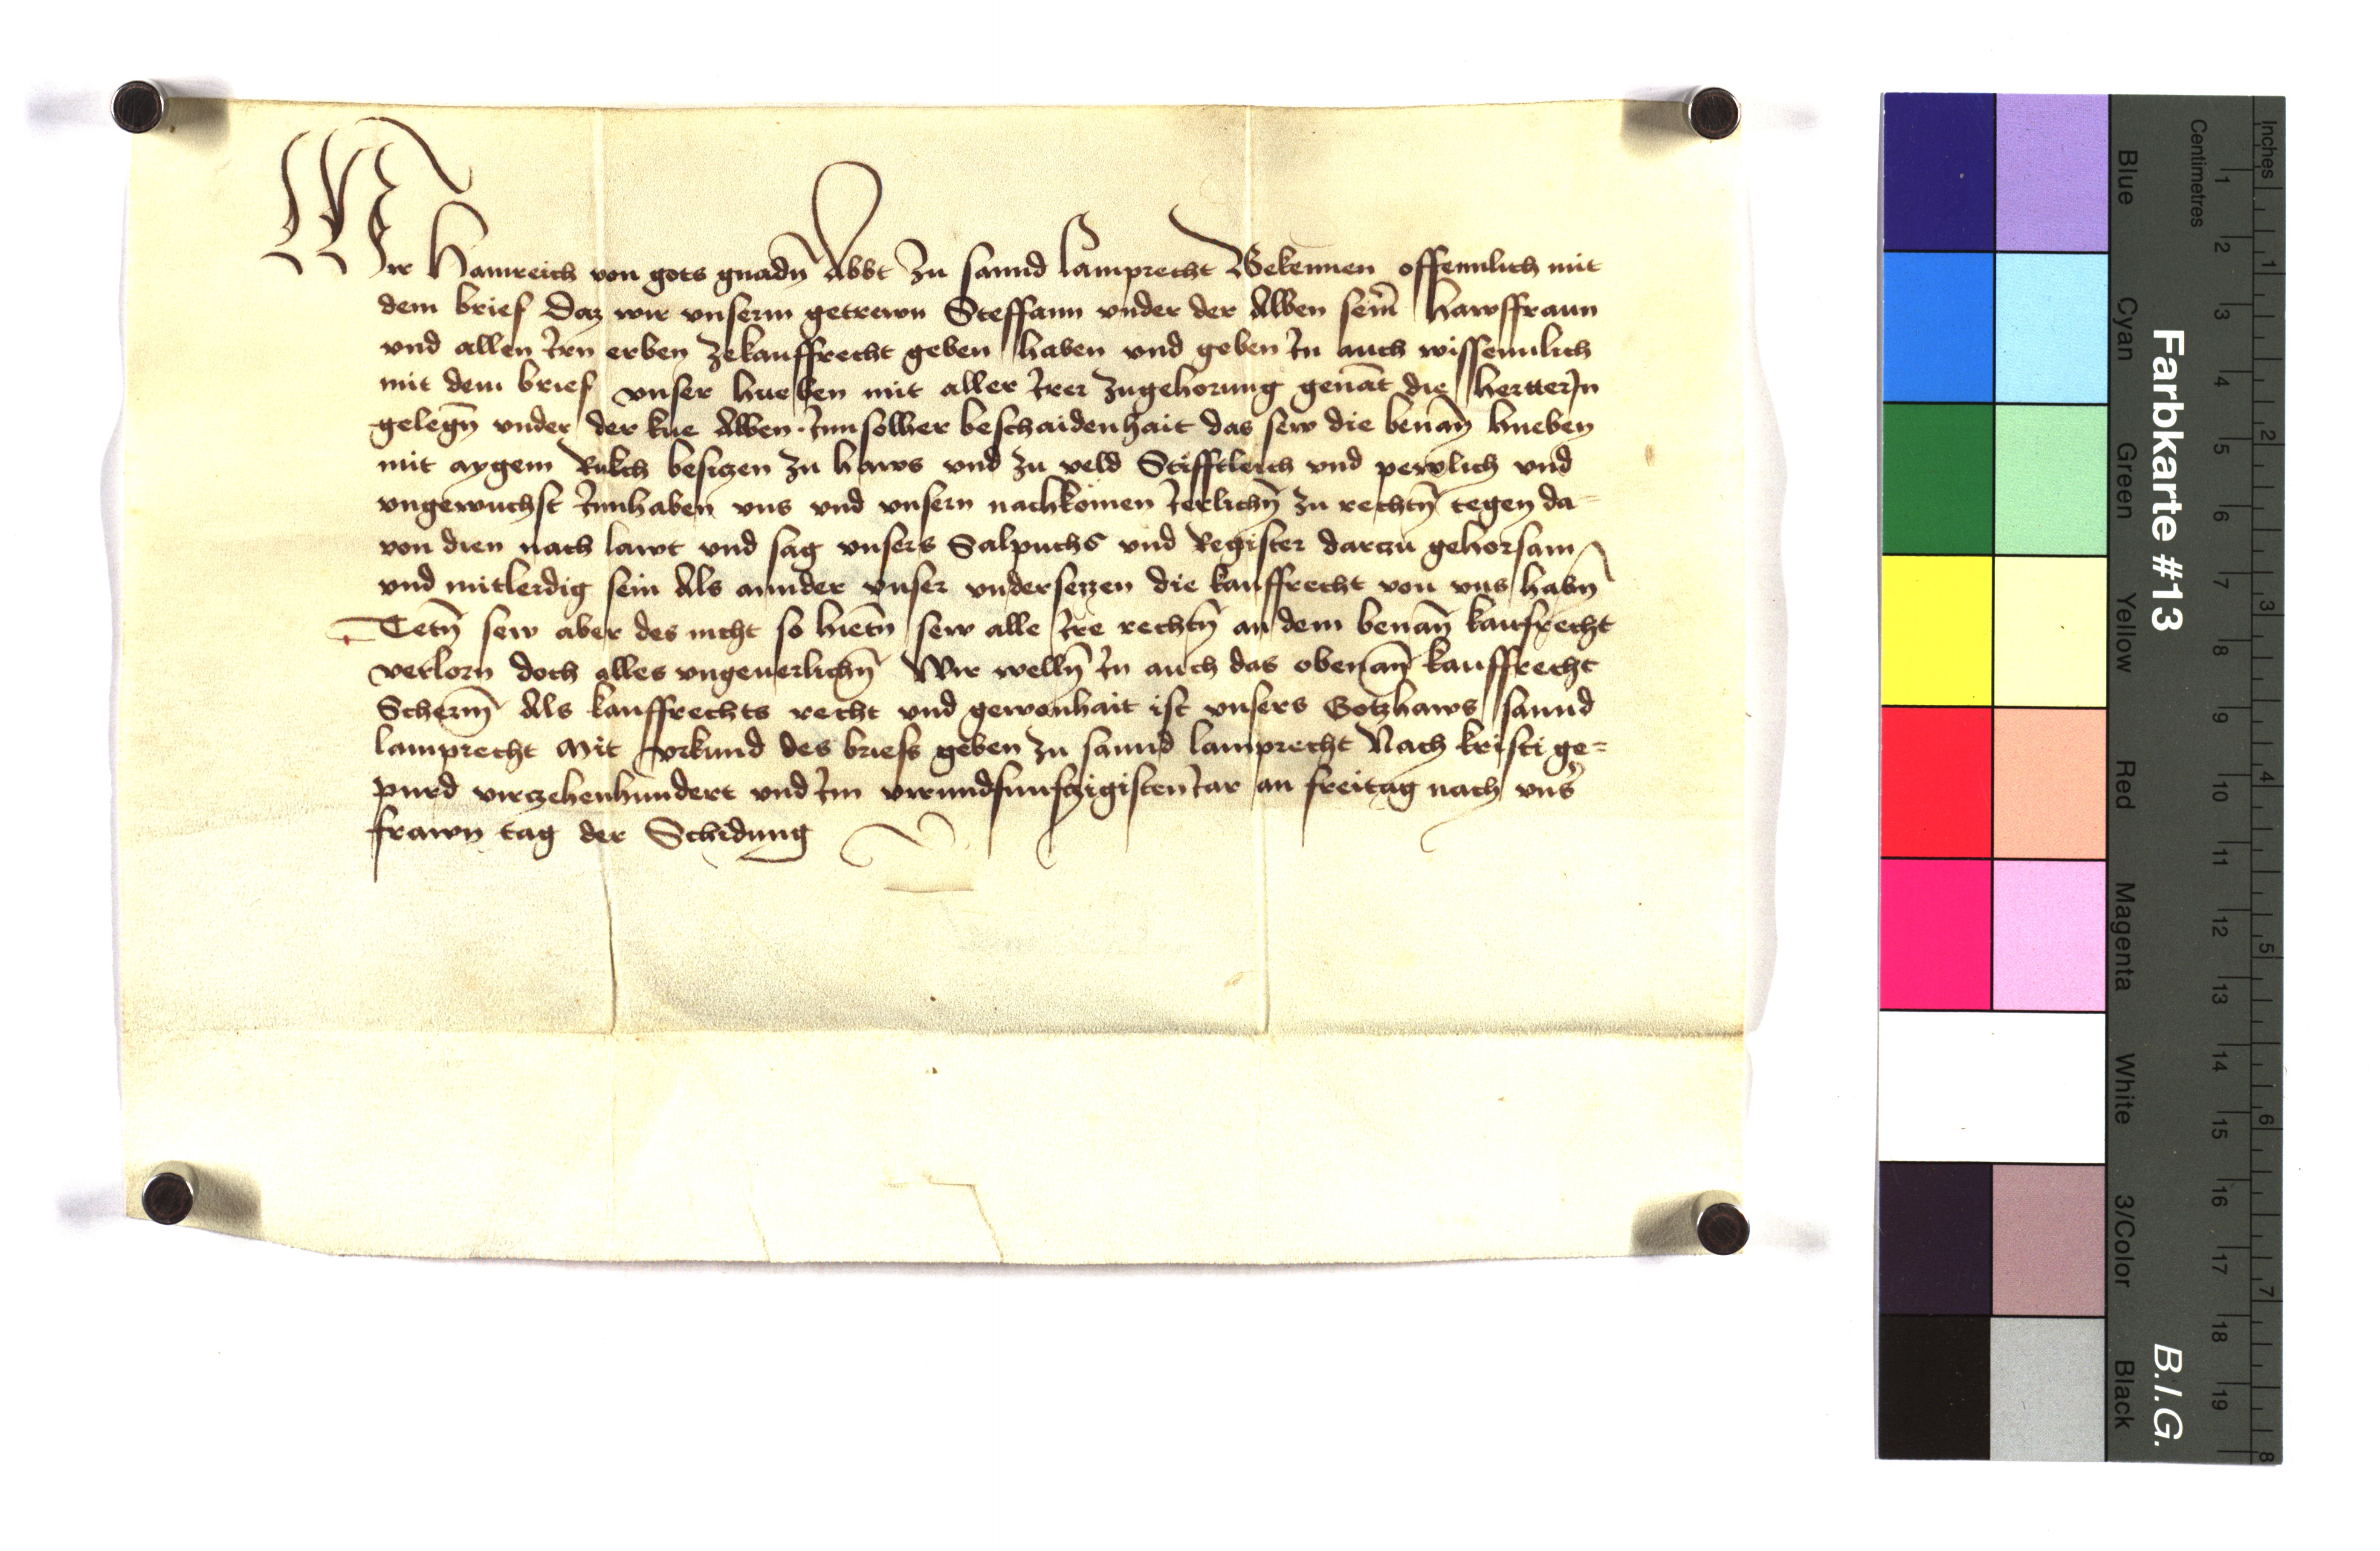 Wir Hainreich von gots gnadn̄ Abbt zu sannd Lamprecht Bekennen offennlich mit
dem brief Daz wir vnserm getrewn Steffann vnder der Alben sein̄ hawsffraun
vnd allen Irn erben zekauffrecht geben haben vnd geben In auch wissennlich
mit dem brief vnser hueben mit aller Irer zugehorung genāt die herterJn
gelegn̄ vnder der kue Alben. Inn solher beschaidenhait das sew die benān̄ hueben
mit aygem Rukch besiczen zu haws vnd zu veld Stifftleich vnd pewlich vnd
vngewuchst Innhaben vns vnd vnsern nachkomen Ierlichn̄ zu rechtn̄ tegen da-
von dien nach lawt vnd sag vnsers Salpuchs vnd Register darzu gehorsam
vnd mitleidig sein Als annder vnser vndersezzen die kauffrecht von vns habn̄
Tetn̄ sew aber des nicht so hietn̄ sew alle Ire rechtn̄ an dem benān̄ kaufrecht
verlorn doch alles vngeuerlichn̄ Wir welln̄ In auch das obenān̄ kauffrecht
Scherm̄ Als kauffrechts recht vnd gewonhait ist vnsers Gotzhaws sannd
lamprecht Mit vrkund des briefs geben zu sannd lamprecht Nach kristi ge-
purd virczehenhundert vnd Im virundfunfczigisten Iar an freitag nach vns̄
frawn tag der Schidung
Farbkarte #13
B.I.G.
Centimetres
Inches
Blue
Cyan
Green
Yellow
Red
Magenta
White
3/Color
Black
1 2 3 4 5 6 7 8 9 10 11 12 13 14 15 16 17 18 19
1 2 3 4 5 6 7 8